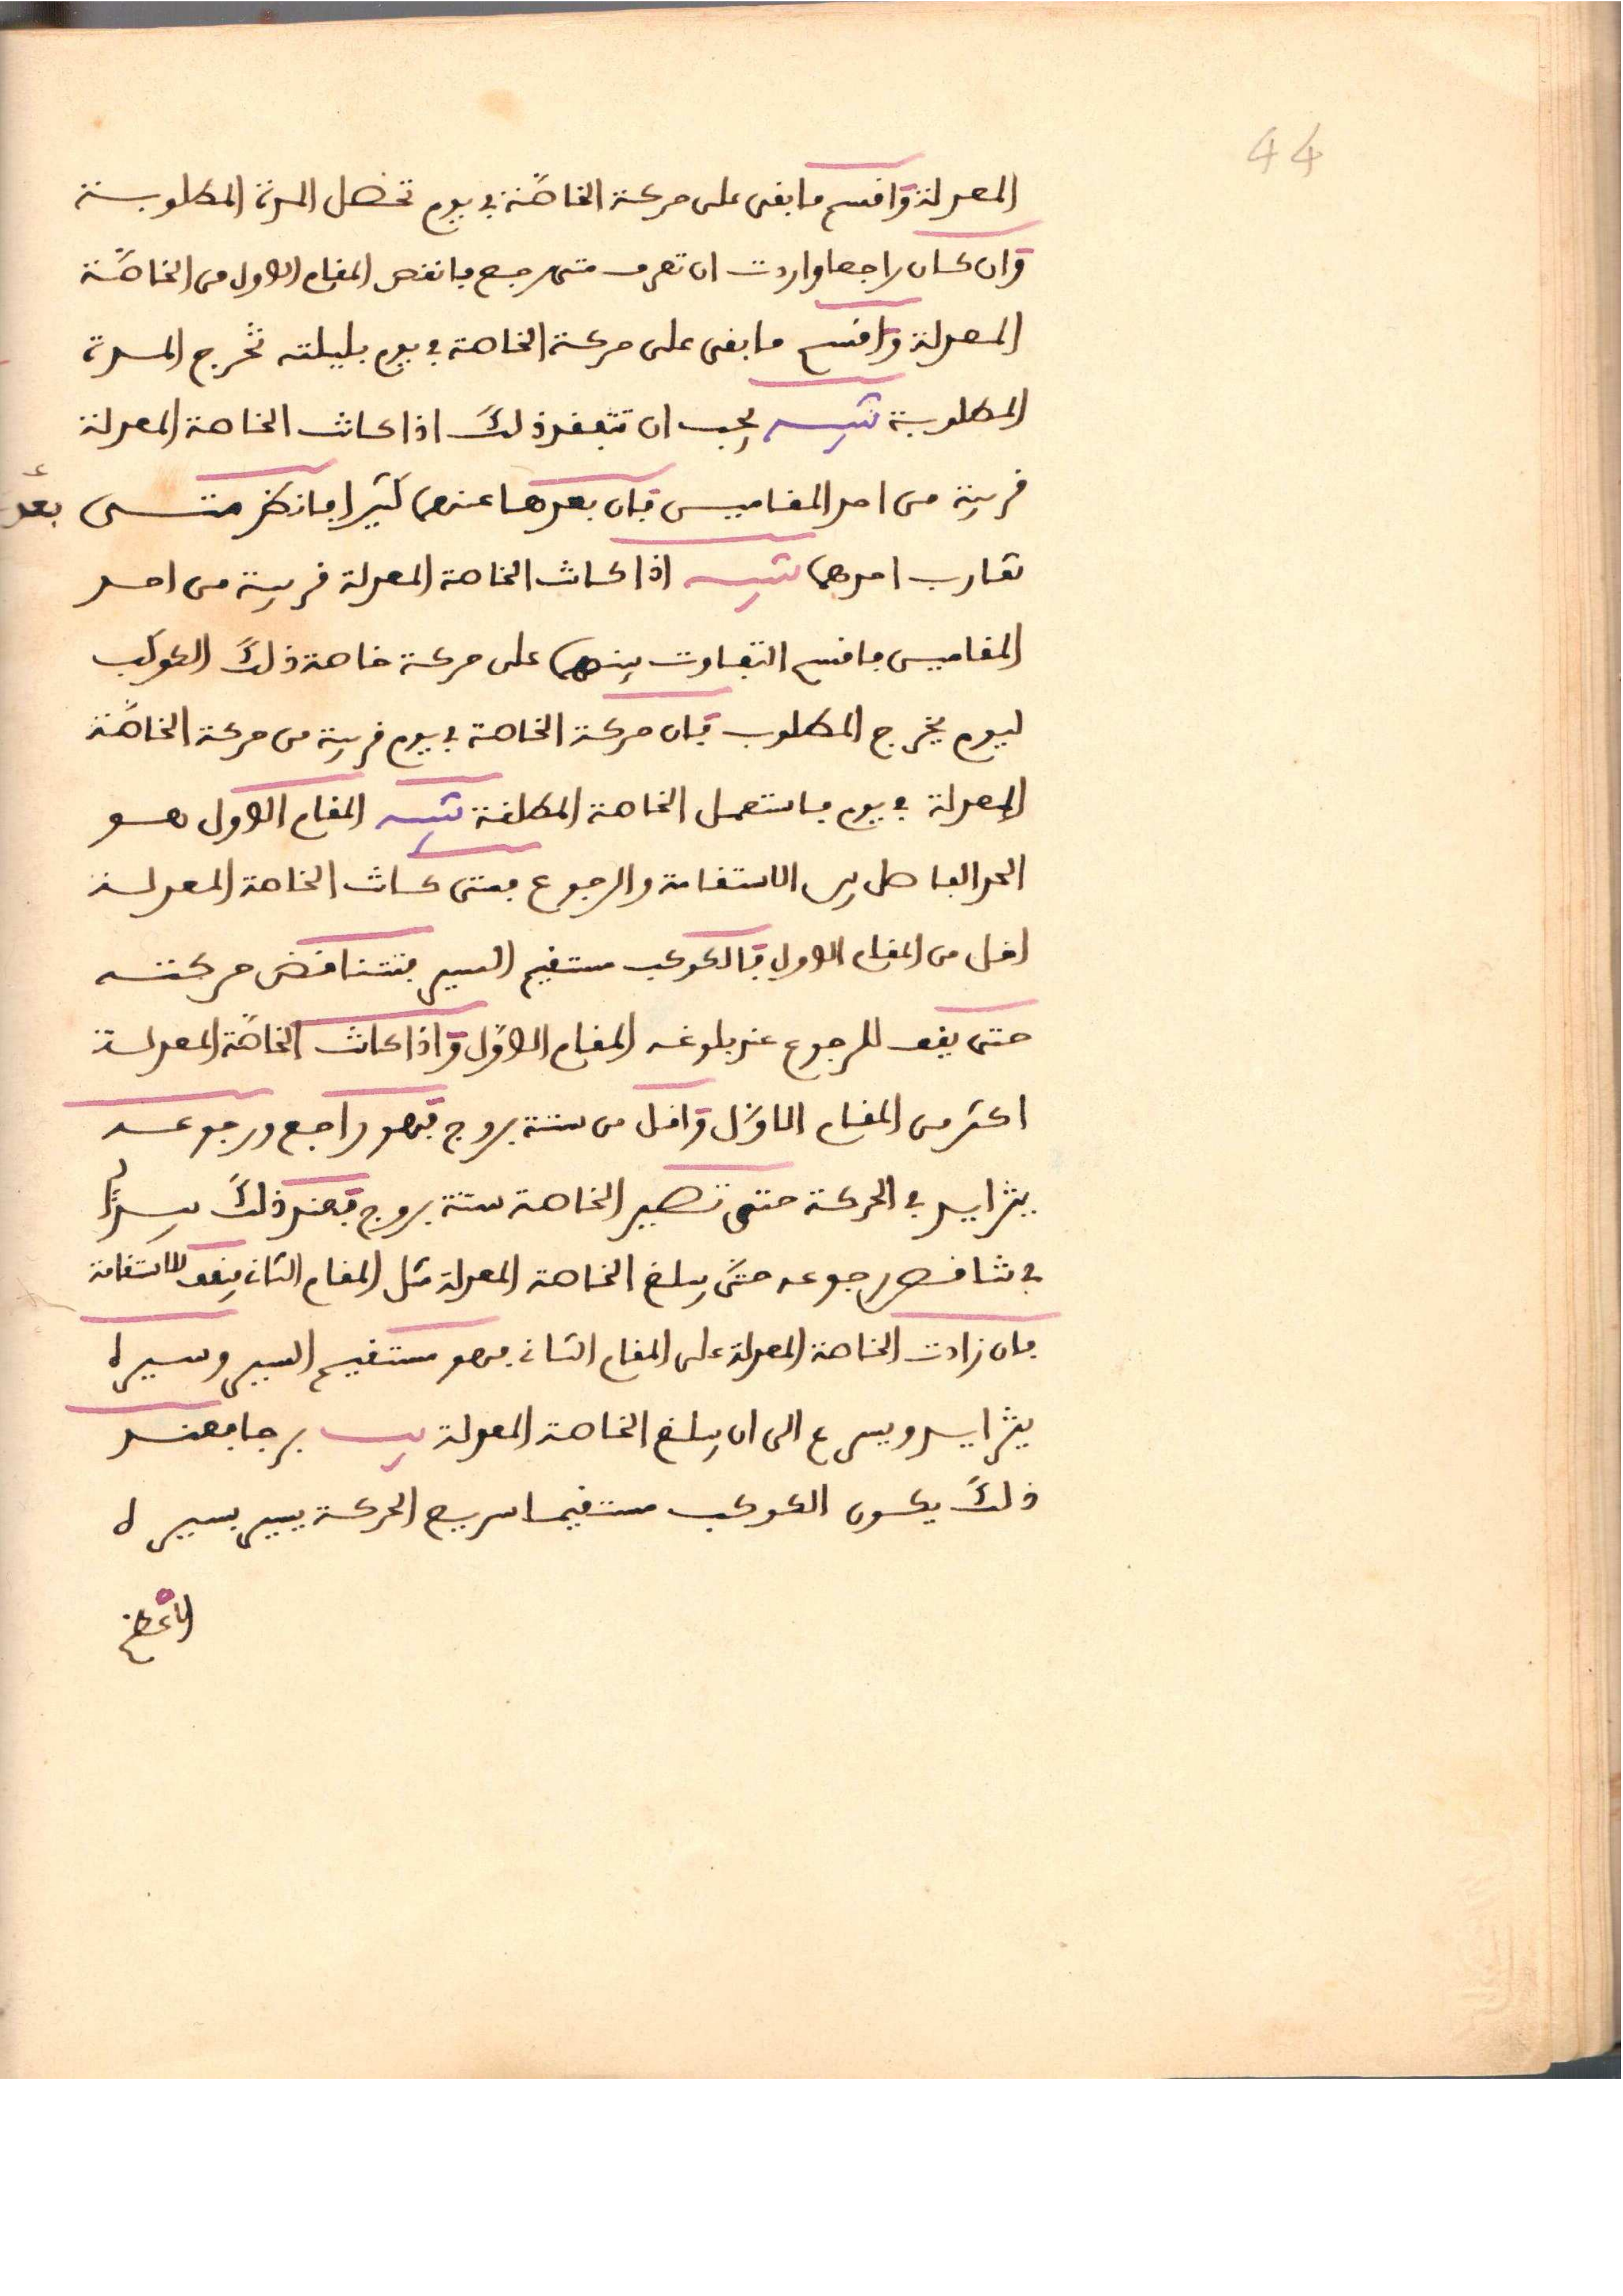 44
المعدلة واقسم ما بقى على حركة الخاصة في يوم تحصل المدة المطلوبة
وان كان راجعا واردت ان تعرف متى رجع فانقص المقام الاول من الخاصة
المعدلة واقسم ما بقى على حركة الخاصة في يوم بليلته تخرج المدة
المطلوبة تنبيه يجب ان تتفقد ذلك اذا كانت الخاصة المعدلة
قريبة من احد المقامين فان بعدها عنهما كثيرا فانظر متى بعد
تقارب احدهما تنبيه اذا كانت الخاصة المعدلة قريبة من احد
المقامين فاقسم التفاوت بينهما على حركة خاصة ذلك الكوكب
ليوم يخرج المطلوب فان حركة الخاصة في يوم قريبة من حركة الخاصة
المعدلة في يوم فاستعمل الخاصة المطلقة تنبيه المقام الاول هو
الحد الفاصل بين الاستقامة والرجوع فمتى كانت الخاصة المعدلة
اقل من المقام الاول فالكوكب مستقيم السير فتتناقض حركته
حتى يقف للرجوع عند بلوغه المقام الاوّل واذا كانت الخاصّة المعدلة
اكثر من المقام الاوّل واقل من ستة بروج فهو راجع ورجوعه
يتزايد في الحركة حتى تصير الخاصة ستة بروج فعند ذلك يبدأ
في تناقص رجوعه حتى يبلغ الخاصة المعدلة مثل المقام الثاني فيقف للاستقامة
فان زادت الخاصة المعدلة على المقام الثاني فهو مستقيم السير وسيره
يتزايد ويسرع الى ان يبلغ الخاصة المعدلة يب برجا فعند
ذلك يكون الكوكب مستقيما سريع الحركة يسير بسيره
الاعظم